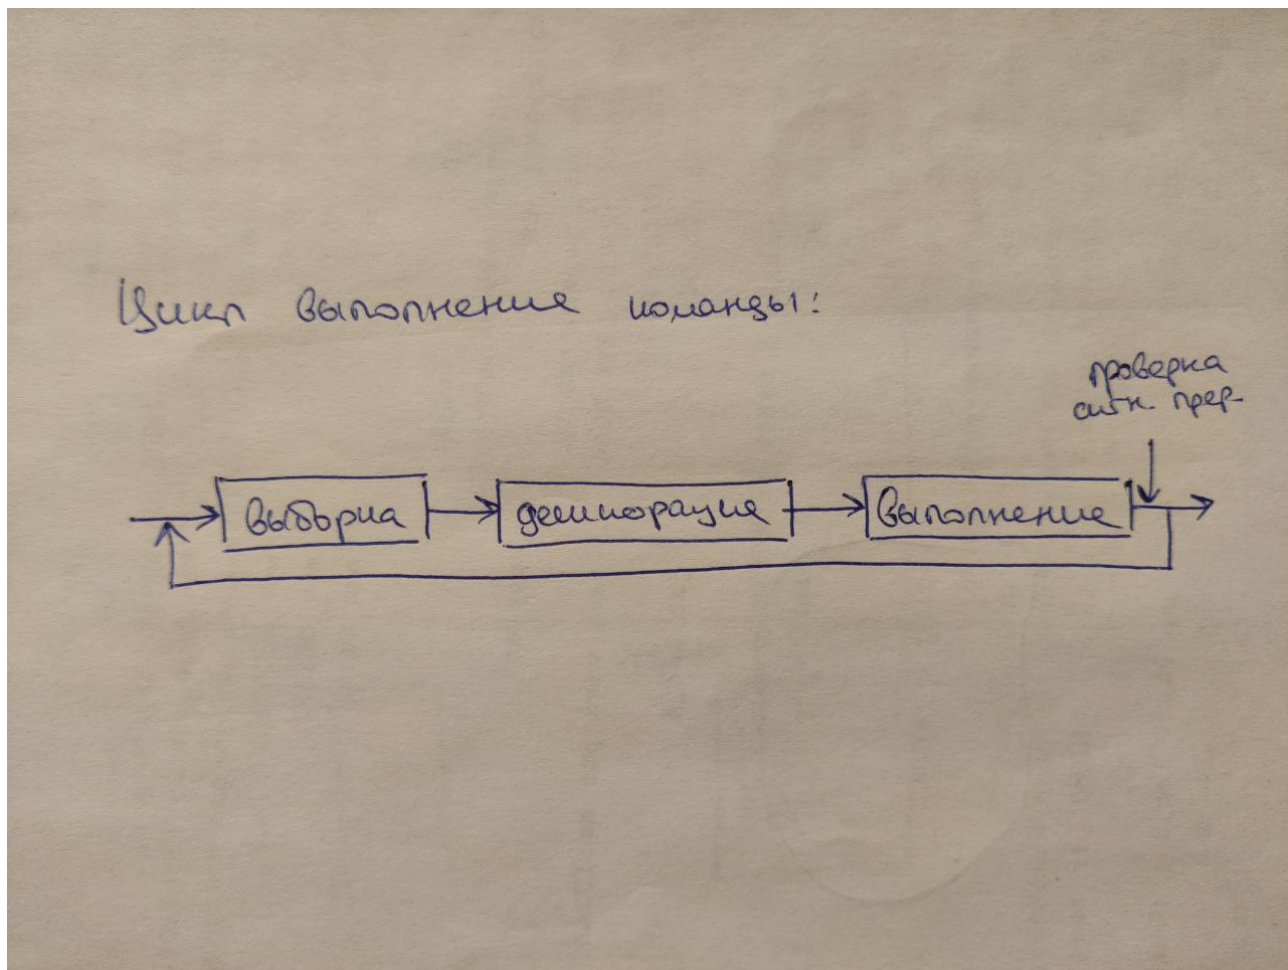 Цикл выполнение команды:
проверка
сигн. прер.
выборка
выполнение